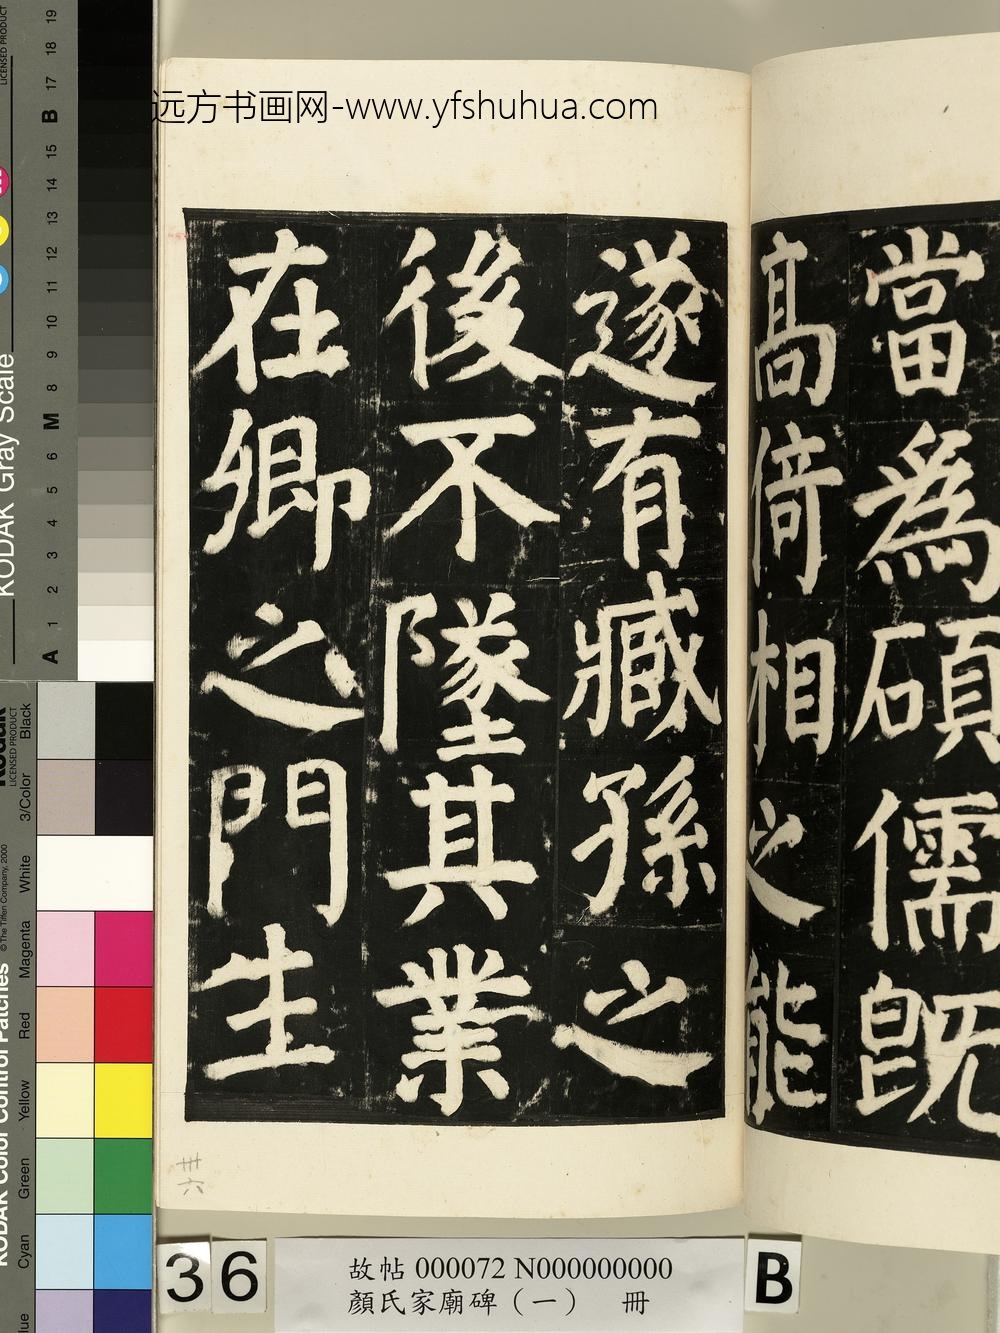 远方书画网-www.yfshuhua.com
當為碩儒既
高倚相之能
遂有臧孫之
後不墜其業
在卿之門生
卅六
36
故帖 000072 N000000000
顏氏家廟碑（一） 冊
B
KODAK Gray Scale
LICENSED PRODUCT
A 1 2 3 4 5 6 M 8 9 10 11 12 13 14 15 B 17 18 19
KODAK Color Control Patches
© The Tiffen Company, 2000
Kodak
LICENSED PRODUCT
Cyan
Green
Yellow
Red
Magenta
White
3/Color
Black